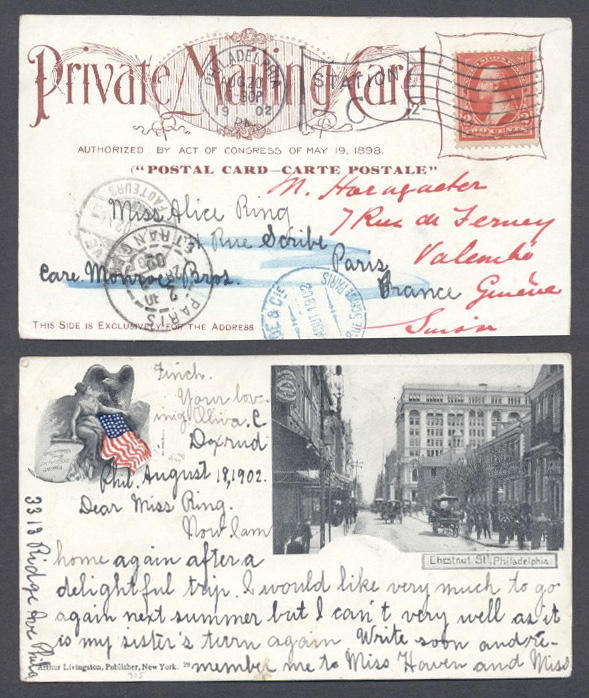 Private Mailing Card
PHILADELPHIA
19 02
PA.
STATION
C 2
TWO CENTS
AUTHORIZED BY ACT OF CONGRESS OF MAY 19, 1898.
("POSTAL CARD—CARTE POSTALE")
Miss Alice Ring
Rue Scribe
Paris
Care Monroe Bros.
France
7 Rue de Ferney
Genève
Suisse
FACTEURS
ETRANGER
PARIS
& CIE
AOUT 1902
THIS SIDE IS EXCLUSIVELY FOR THE ADDRESS
Finch.
Your lov-
ing Oliva C.
Doxrud
Phil. August 18, 1902.
Dear Miss Ring.
Now I am
home again after a
delightful trip. I would like very much to go
again next summer but I can't very well as it
is my sister's turn again. Write soon and re-
member me to Miss Haven and Miss
3313 Ridge Ave Phila
Chestnut St., Philadelphia.
Arthur Livingston, Publisher, New York. 19